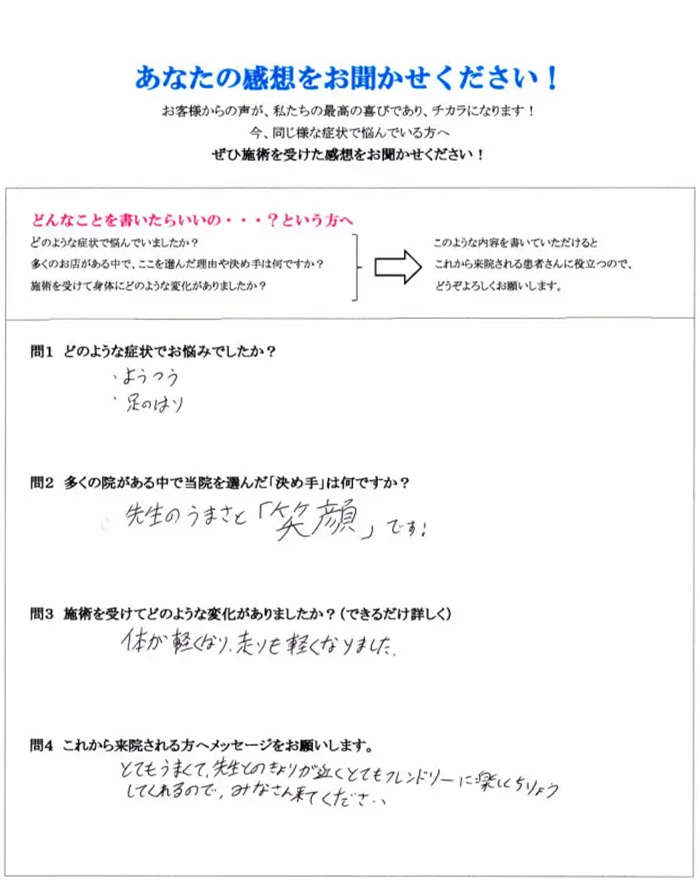 あなたの感想をお聞かせください！
お客様からの声が、私たちの最高の喜びであり、チカラになります！
今、同じ様な症状で悩んでいる方へ
ぜひ施術を受けた感想をお聞かせください！
どんなことを書いたらいいの・・・？という方へ
どのような症状で悩んでいましたか？
多くのお店がある中で、ここを選んだ理由や決め手は何ですか？
施術を受けて身体にどのような変化がありましたか？
このような内容を書いていただけると
これから来院される患者さんに役立つので、
どうぞよろしくお願いします。
問1 どのような症状でお悩みでしたか？
・ようつう
・足のはり
問2 多くの院がある中で当院を選んだ「決め手」は何ですか？
先生のうまさと「笑顔」です!
問3 施術を受けてどのような変化がありましたか？（できるだけ詳しく）
体が軽くなり、走りも軽くなりました.
問4 これから来院される方へメッセージをお願いします。
とてもうまくて、先生とのきょりが近くとてもフレンドリーに楽しくちりょう
してくれるので、みなさん来てください